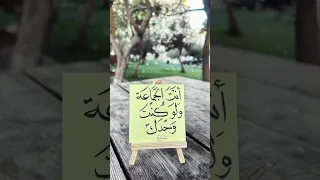 أنتَ الجَمَاعَة
وَلَو كُنتَ
وَحْدَكَ